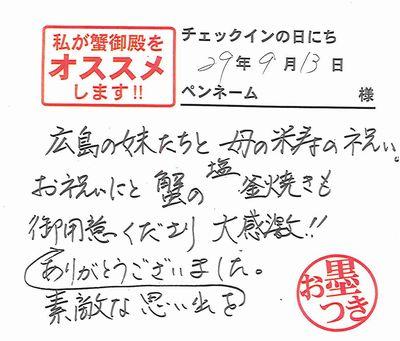 私が蟹御殿を
オススメ
します!!
チェックインの日にち
29年9月13日
ペンネーム 様
広島の妹たちと母の米寿の祝い。
お祝いにと蟹の塩釜焼きも
御用意くださり大感激!!
ありがとうございました。
素敵な思い出を
お墨つき